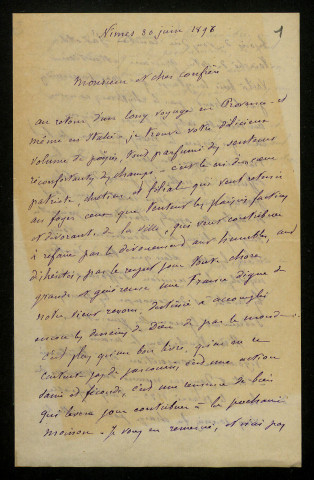 1
Nimes 30 juin 1898
Monsieur et cher confrère
au retour d'un long voyage en Provence et
même en Italie je trouve votre délicieux
volume de poésies, tout parfumé des senteurs
réconfortantes des champs - c'est le cri d'un cœur
patriote, chrétien et filial qui veut retenir
au foyer ceux que tentent les plaisirs factices
et dévorants de la ville, qui veut contribuer
à refaire par le dévouement aux humbles, aux
déshérités, par le respect pour toute chose
grande et généreuse une France digne de
notre vieux renom, destinée à accomplir
encore les desseins de Dieu de par le monde -
c'est plus qu'un bon livre, qu'on en ce
contient, c'est une action
saine et féconde, c'est une semence de bien
qui lèvera pour contribuer à la prochaine
moisson - Je vous en remercie, et n'ai pas